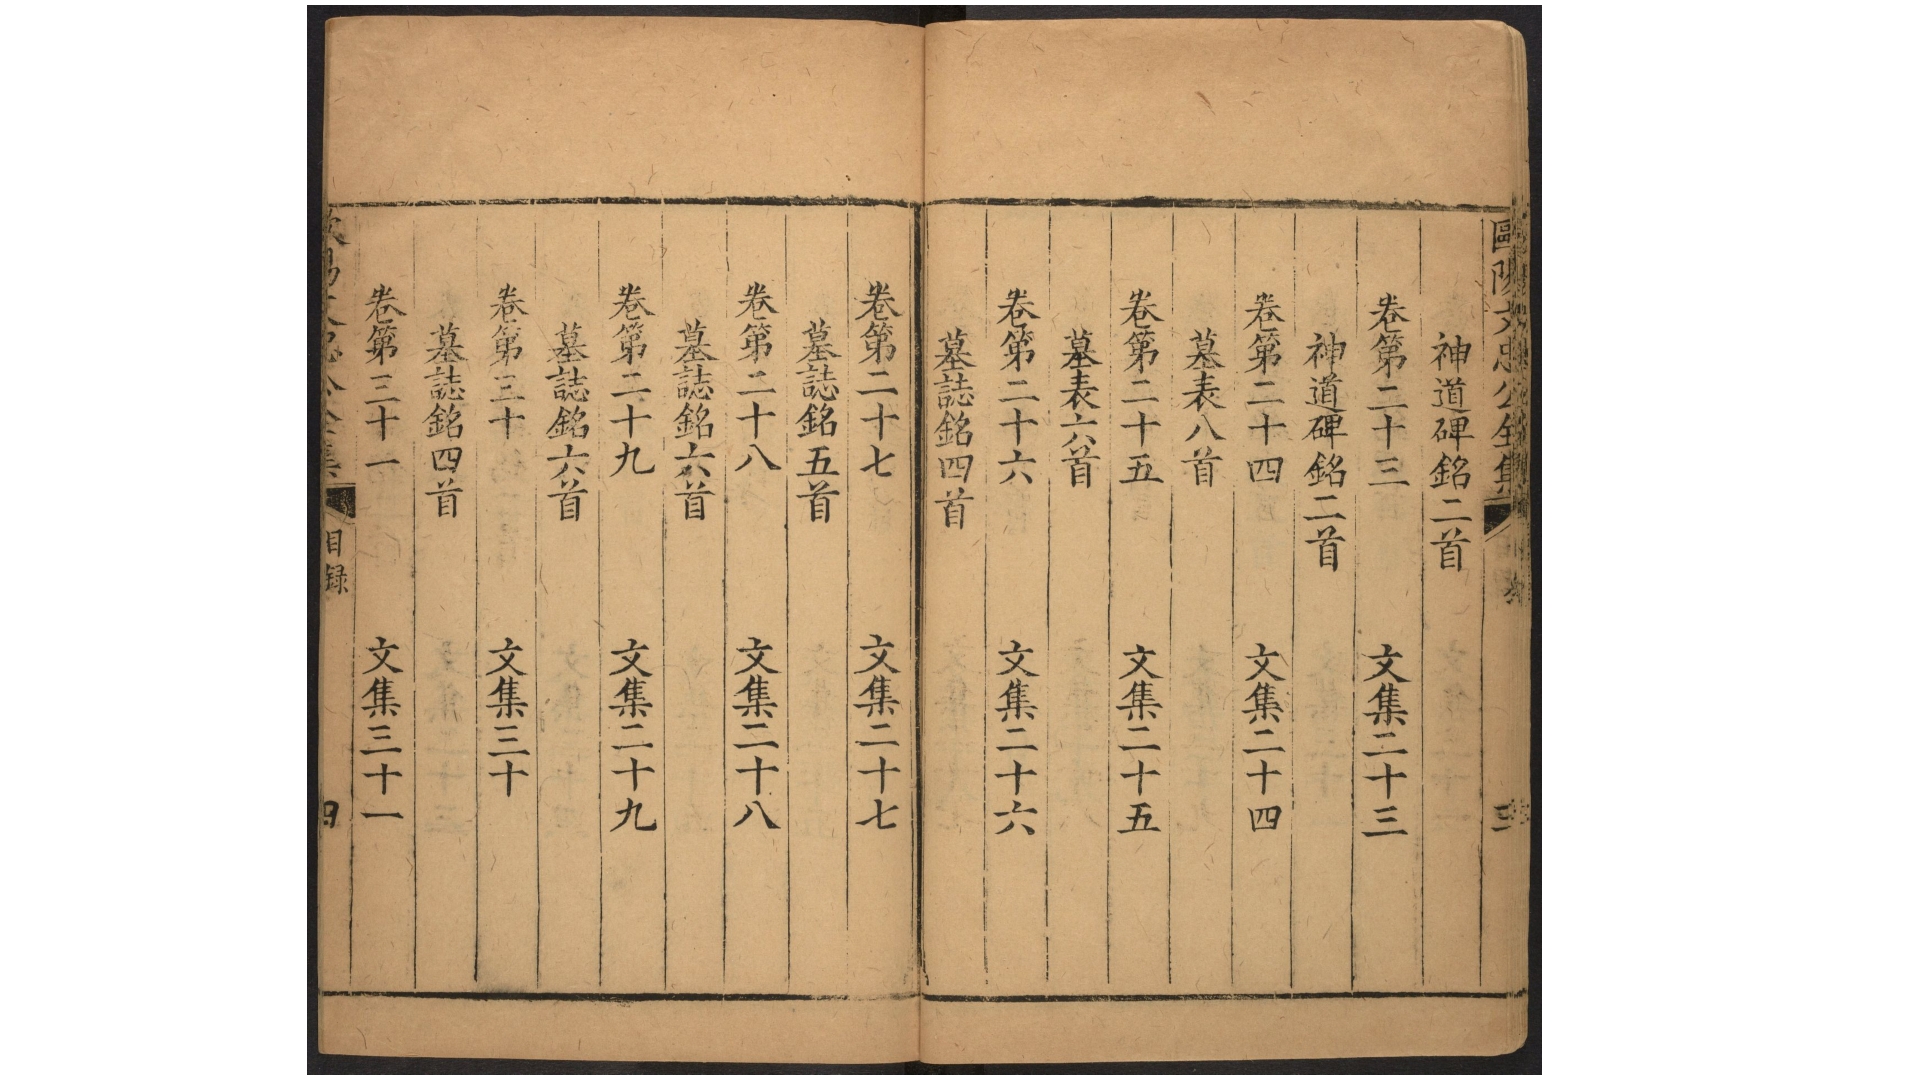 歐陽文忠公全集
三
神道碑銘二首
卷第二十三 文集二十三
神道碑銘二首
卷第二十四 文集二十四
墓表八首
卷第二十五 文集二十五
墓表六首
卷第二十六 文集二十六
墓誌銘四首
卷第二十七 文集二十七
墓誌銘五首
卷第二十八 文集二十八
墓誌銘六首
卷第二十九 文集二十九
墓誌銘六首
卷第三十 文集三十
墓誌銘四首
卷第三十一 文集三十一
目録
四